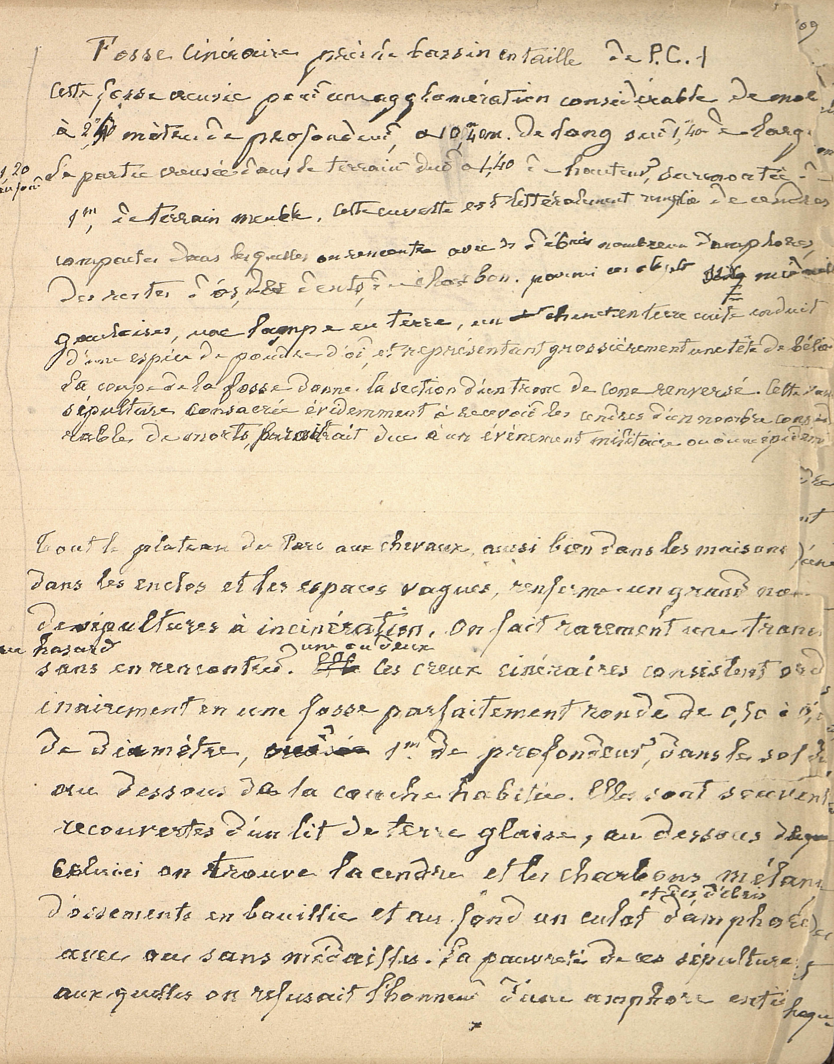 109
Fosse cinéraire près le bassin en taille de P.C. 1
Cette fosse creusée pour une agglomération considérable de mor
à 2m40 mètres de profondeur, a 10m40m. de long sur 1,40 de larg.
1,20
au fond
La partie creusée dans le terrain dur a 1,40 de hauteur, surmontée d
1m, de terrain meuble. Cette cuvette est littéralement remplie de cendres
compactes dans lesquelles on rencontre avec des débris nombreux d'amphores,
des restes d'os, de dents, de charbon. parmi ces objets six médailles
gauloises, une lampe en terre, un chenet en terre cuite enduit
d'une espèce de poudre d'or, et représentant grossièrement une tête de bélie
La coupe de la fosse donne la section d'un tronc de cone renversé. Cette
sépulture consacrée évidemment à recevoir les cendres d'un nombre consi
rables de morts paraîtrait due à un événement militaire ou à une épidémi
Tout le plateau du Parc aux chevaux, aussi bien dans les maisons
dans les enclos et les espaces vagues, renferme un grand nom
de sépultures à incinération. On fait rarement une tranc
au hasard
sans en rencontrer une ou deux. Ces creux cinéraires consistent ord
inairement en une fosse parfaitement ronde de 0,50 à
de diamètre, 1m de profondeur, dans le sol
au dessous de la couche habitée. Elles sont souvent
recouvertes d'un lit de terre glaise, au dessous de
celui ci on trouve la cendre et les charbons mélan
d'ossements en bouillie et des débris et au fond un culot d'amphore
avec ou sans médailles. La pauvreté de ces sépultures
aux quelles on refusait l'honneur d'une amphore entiè